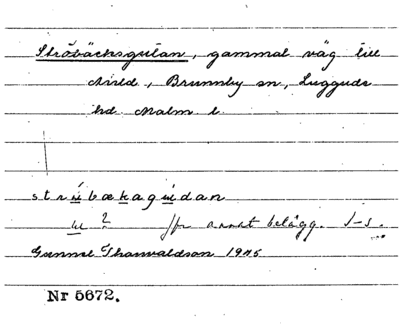 Ströbäcksgutan, gammal väg till
Arild, Brunnby sn, Luggude
hd. Malm. l.
strübækagüdan
u ? jfr annat belägg.
Gunnel Thorvaldson 1945
Nr 5672.